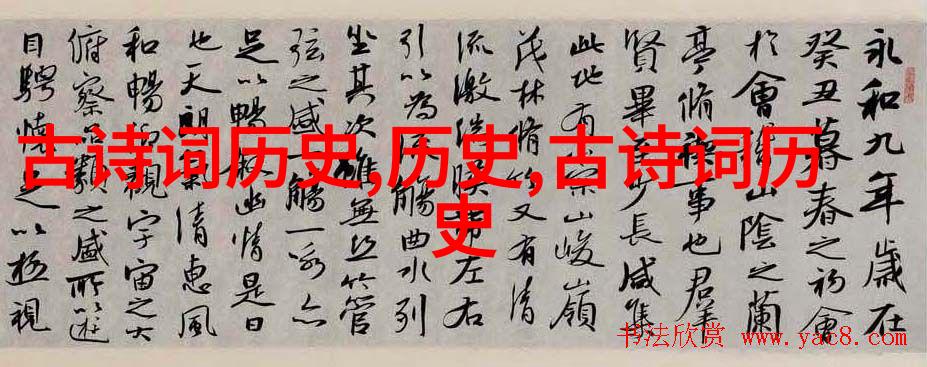 永和九年歲在
癸丑暮春之初會
於會稽山陰之蘭
亭脩稧事也羣
賢畢至少長咸集
此地有崇山峻嶺
茂林脩竹又有清
流激湍暎帶左右
引以為流觴曲水列
坐其次雖無絲竹管
弦之盛一觴一詠亦
足以暢敘幽情是日
也天朗氣清惠風
和暢仰觀宇宙之大
俯察品類之盛所以遊
目騁懷足以極視
古诗词历史,历史,古诗词历
史
书法欣赏 www.yac8.com